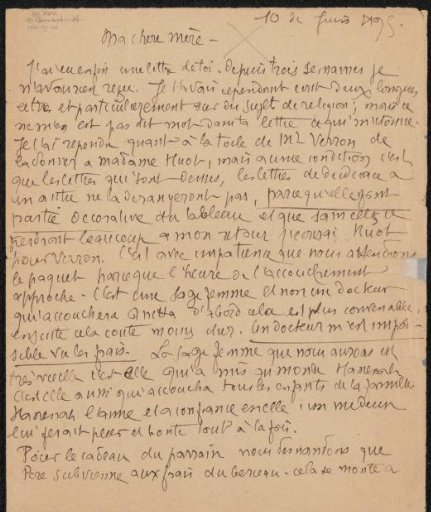 10 de Juin 1895.
Ma chere mère -
J'ai eu enfin une lettre de toi. Depuis trois semaines je
n'avais rien reçu. Je t'avais cependant écrit deux longues
lettres et particulierement sur des sujets de religion; mais ce
ne m'en est pas dit mot dans ta lettre ce qui m'étonne.
Je t'ai repondu quant à la toile de Mr Verron de
la donner a madame Huot, mais a une condition c'est
que les lettres qui sont dessus, les lettres de dedicace a
un autre ne la derangeront pas, parce qu'elles font
partie decorative du tableau et que sans cela il
perdront beaucoup a mon retour
pour Verron. C'est avec impatience que nous attendons
le paquet parce que l'heure de l'accouchement
approche. C'est une sage femme et non un docteur
qui accouchera d'abord cela est plus convenable,
ensuite cela coute moins cher. Un docteur m'est impos-
sible vu les frais. La sage femme que nous aurons est
très vieille c'est elle qui a mis au monde Hanenah
c'est elle aussi qui accoucha tous les enfants de la famille
Hanenah l'aime et a confiance en elle, un medecin
lui ferait peur et honte tout à la fois.
Pour le cadeau du parrain nous demandons que
Pere subvienne aux frais du berceau - cela se monte a